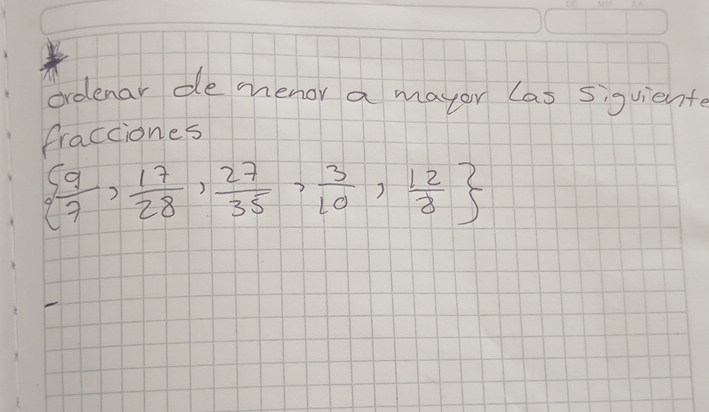 ordenar de menor a mayor las siguiente
fracciones
{9/7, 17/28, 27/35, 3/10, 12/8}